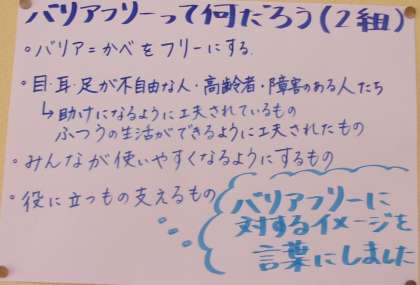 バリアフリーって何だろう(2組)
・バリア=かべをフリーにする.
・目・耳・足が不自由な人・高齢者・障害のある人たち
↳助けになるように工夫されているもの
ふつうの生活ができるように工夫されたもの
・みんなが使いやすくなるようにするもの
・役に立つもの支えるもの
バリアフリーに
対するイメージを
言葉にしました